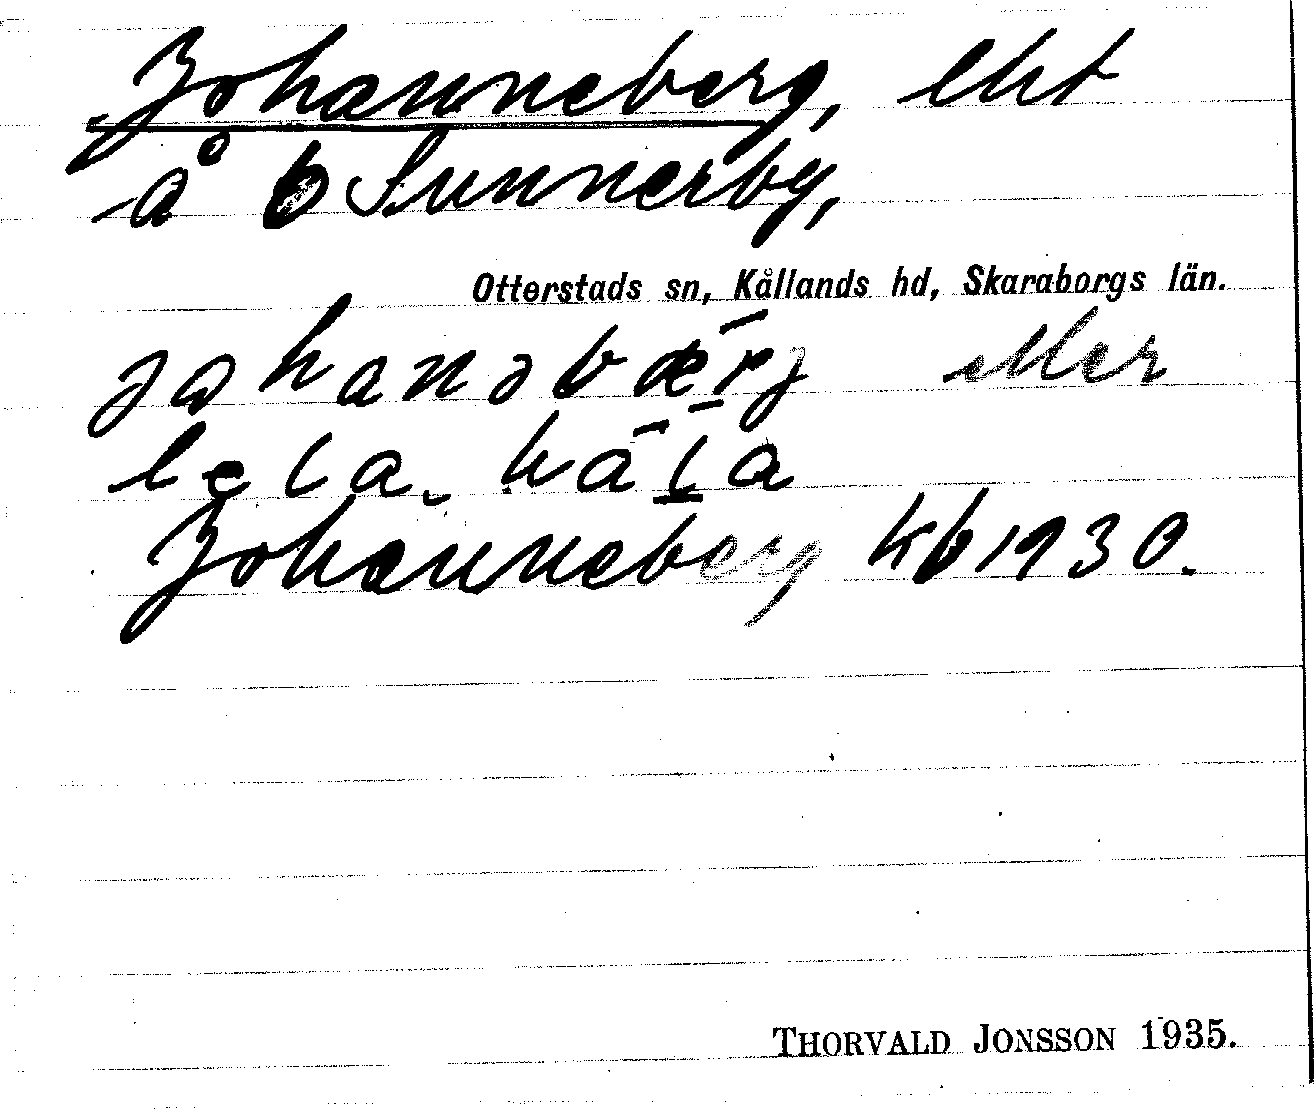 Johanneberg, lht
å 6 Sunnerby,
Otterstads sn, Kållands hd, Skaraborgs län.
eller
Johanneberg kb 1930.
THORVALD JONSSON 1935.